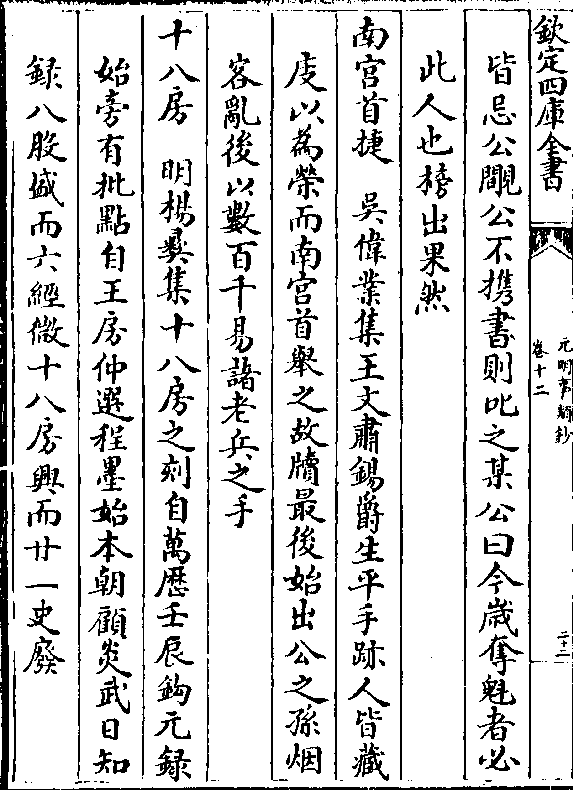 欽定四庫全書
元明事類鈔
卷十二
二十二
皆忌公覵公不攜書則叱之某公曰今歲奪魁者必
此人也榜出果然
南宫首捷　吳偉業集王文肅錫爵生平手跡人皆藏
庋以為榮而南宫首舉之故牘最後始出公之孫烟
客亂後以數百千易諸老兵之手
十八房　明楊彞集十八房之刻自萬厯壬辰鈎元録
始旁有批點自王房仲選程墨始本朝顧炎武日知
録八股盛而六經微十八房興而廿一史廢